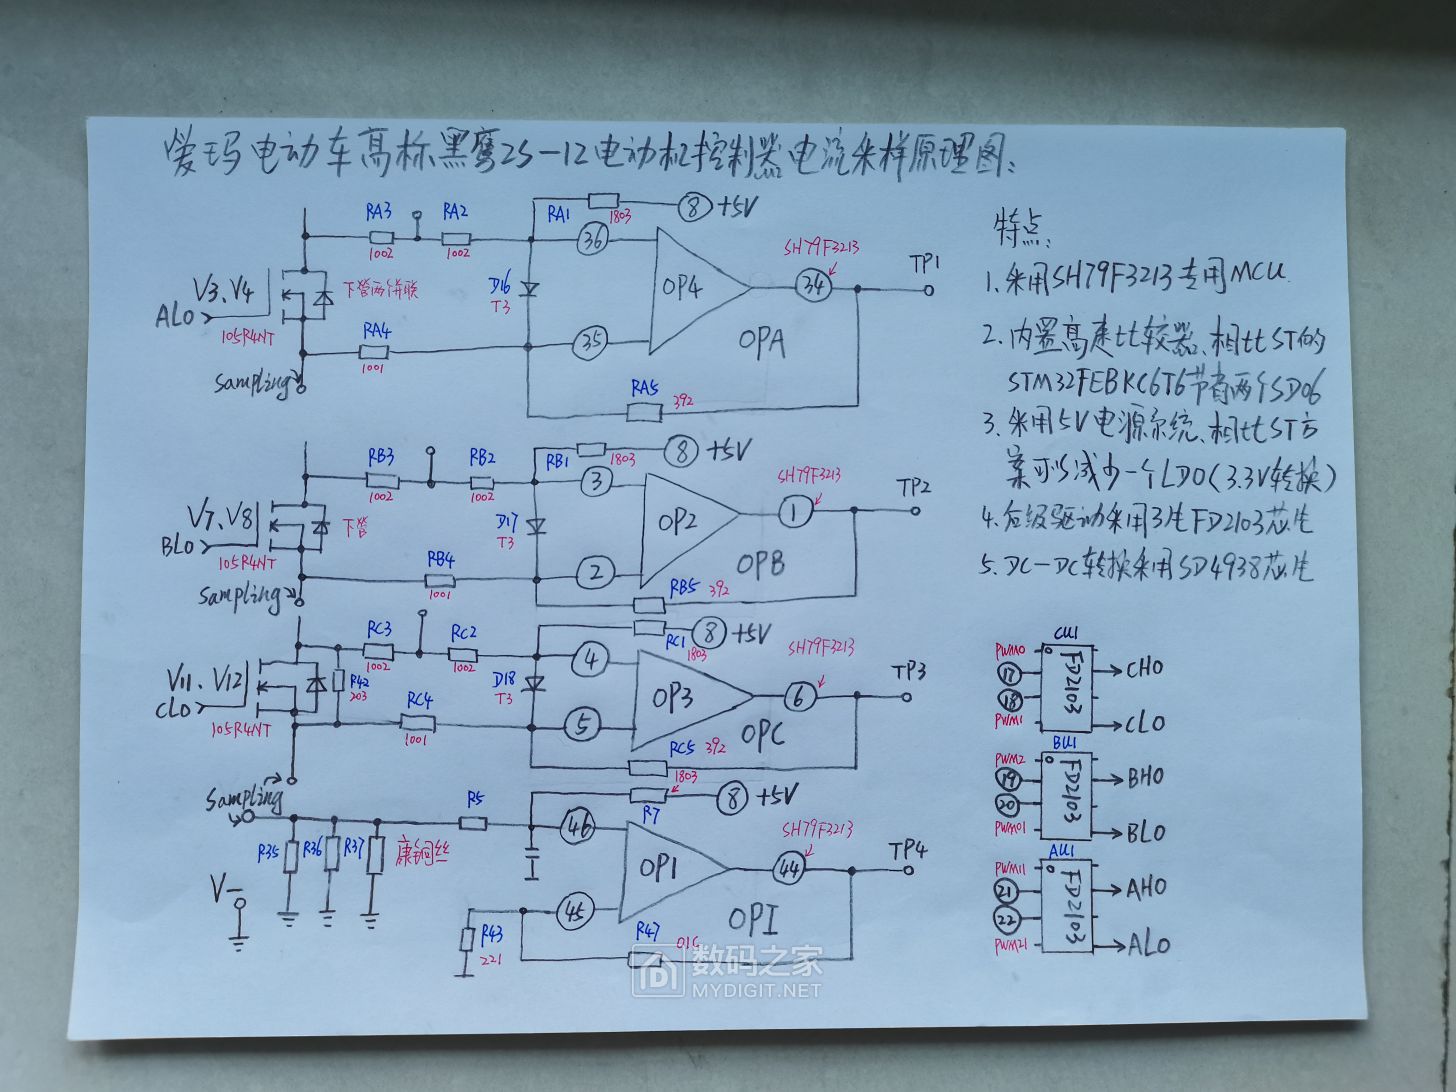 爱玛电动车高标黑鹰25-12电动机控制器电流采样原理图:
RA3 RA2 RA1 1803 ⑧+5V
1002 1002 ㊱
SH79F3213
V3、V4 下管两个并联 D16 T3 OP4 ㉞ TP1
ALO 105R4NT
RA4 1001 ㉟ OPA
Sampling
RA5 392
RB3 RB2 RB1 1803 ⑧+5V
1002 1002 ③
SH79F3213
V7、V8 下管 D17 T3 OP2 ① TP2
BLO 105R4NT
RB4 1001 ② OPB
Sampling
RB5 392
RC3 RC2 RC1 1803 ⑧+5V
1002 1002 ④
SH79F3213
V11、V12 R42 203 D18 T3 OP3 ⑥ TP3
CLO 105R4NT
RC4 1001 ⑤ OPC
RC5 392
Sampling
R5 1803 R7 ⑧+5V
㊻
SH79F3213
R35 R36 R37 康铜丝 OP1 ㊹ TP4
V-
㊺ OPI
R43 221 R47
数码之家
MYDIGIT.NET
特点:
1. 采用SH79F3213专用MCU.
2. 内置高速比较器、相比ST的
STM32FEBKC6T6节省两个SD06
3. 采用5V电源系统、相比ST方
案可以减少一个LDO(3.3V转换)
4. 后级驱动采用3片FD2103芯片
5. DC-DC转换采用SD4938芯片
CU1
PWM0 ⑰ ⑱ PWM1 FD2103 CHO CLO
BU1
PWM2 ⑲ ⑳ PWM01 FD2103 BHO BLO
AU1
PWM11 ㉑ ㉒ PWM21 FD2103 AHO ALO